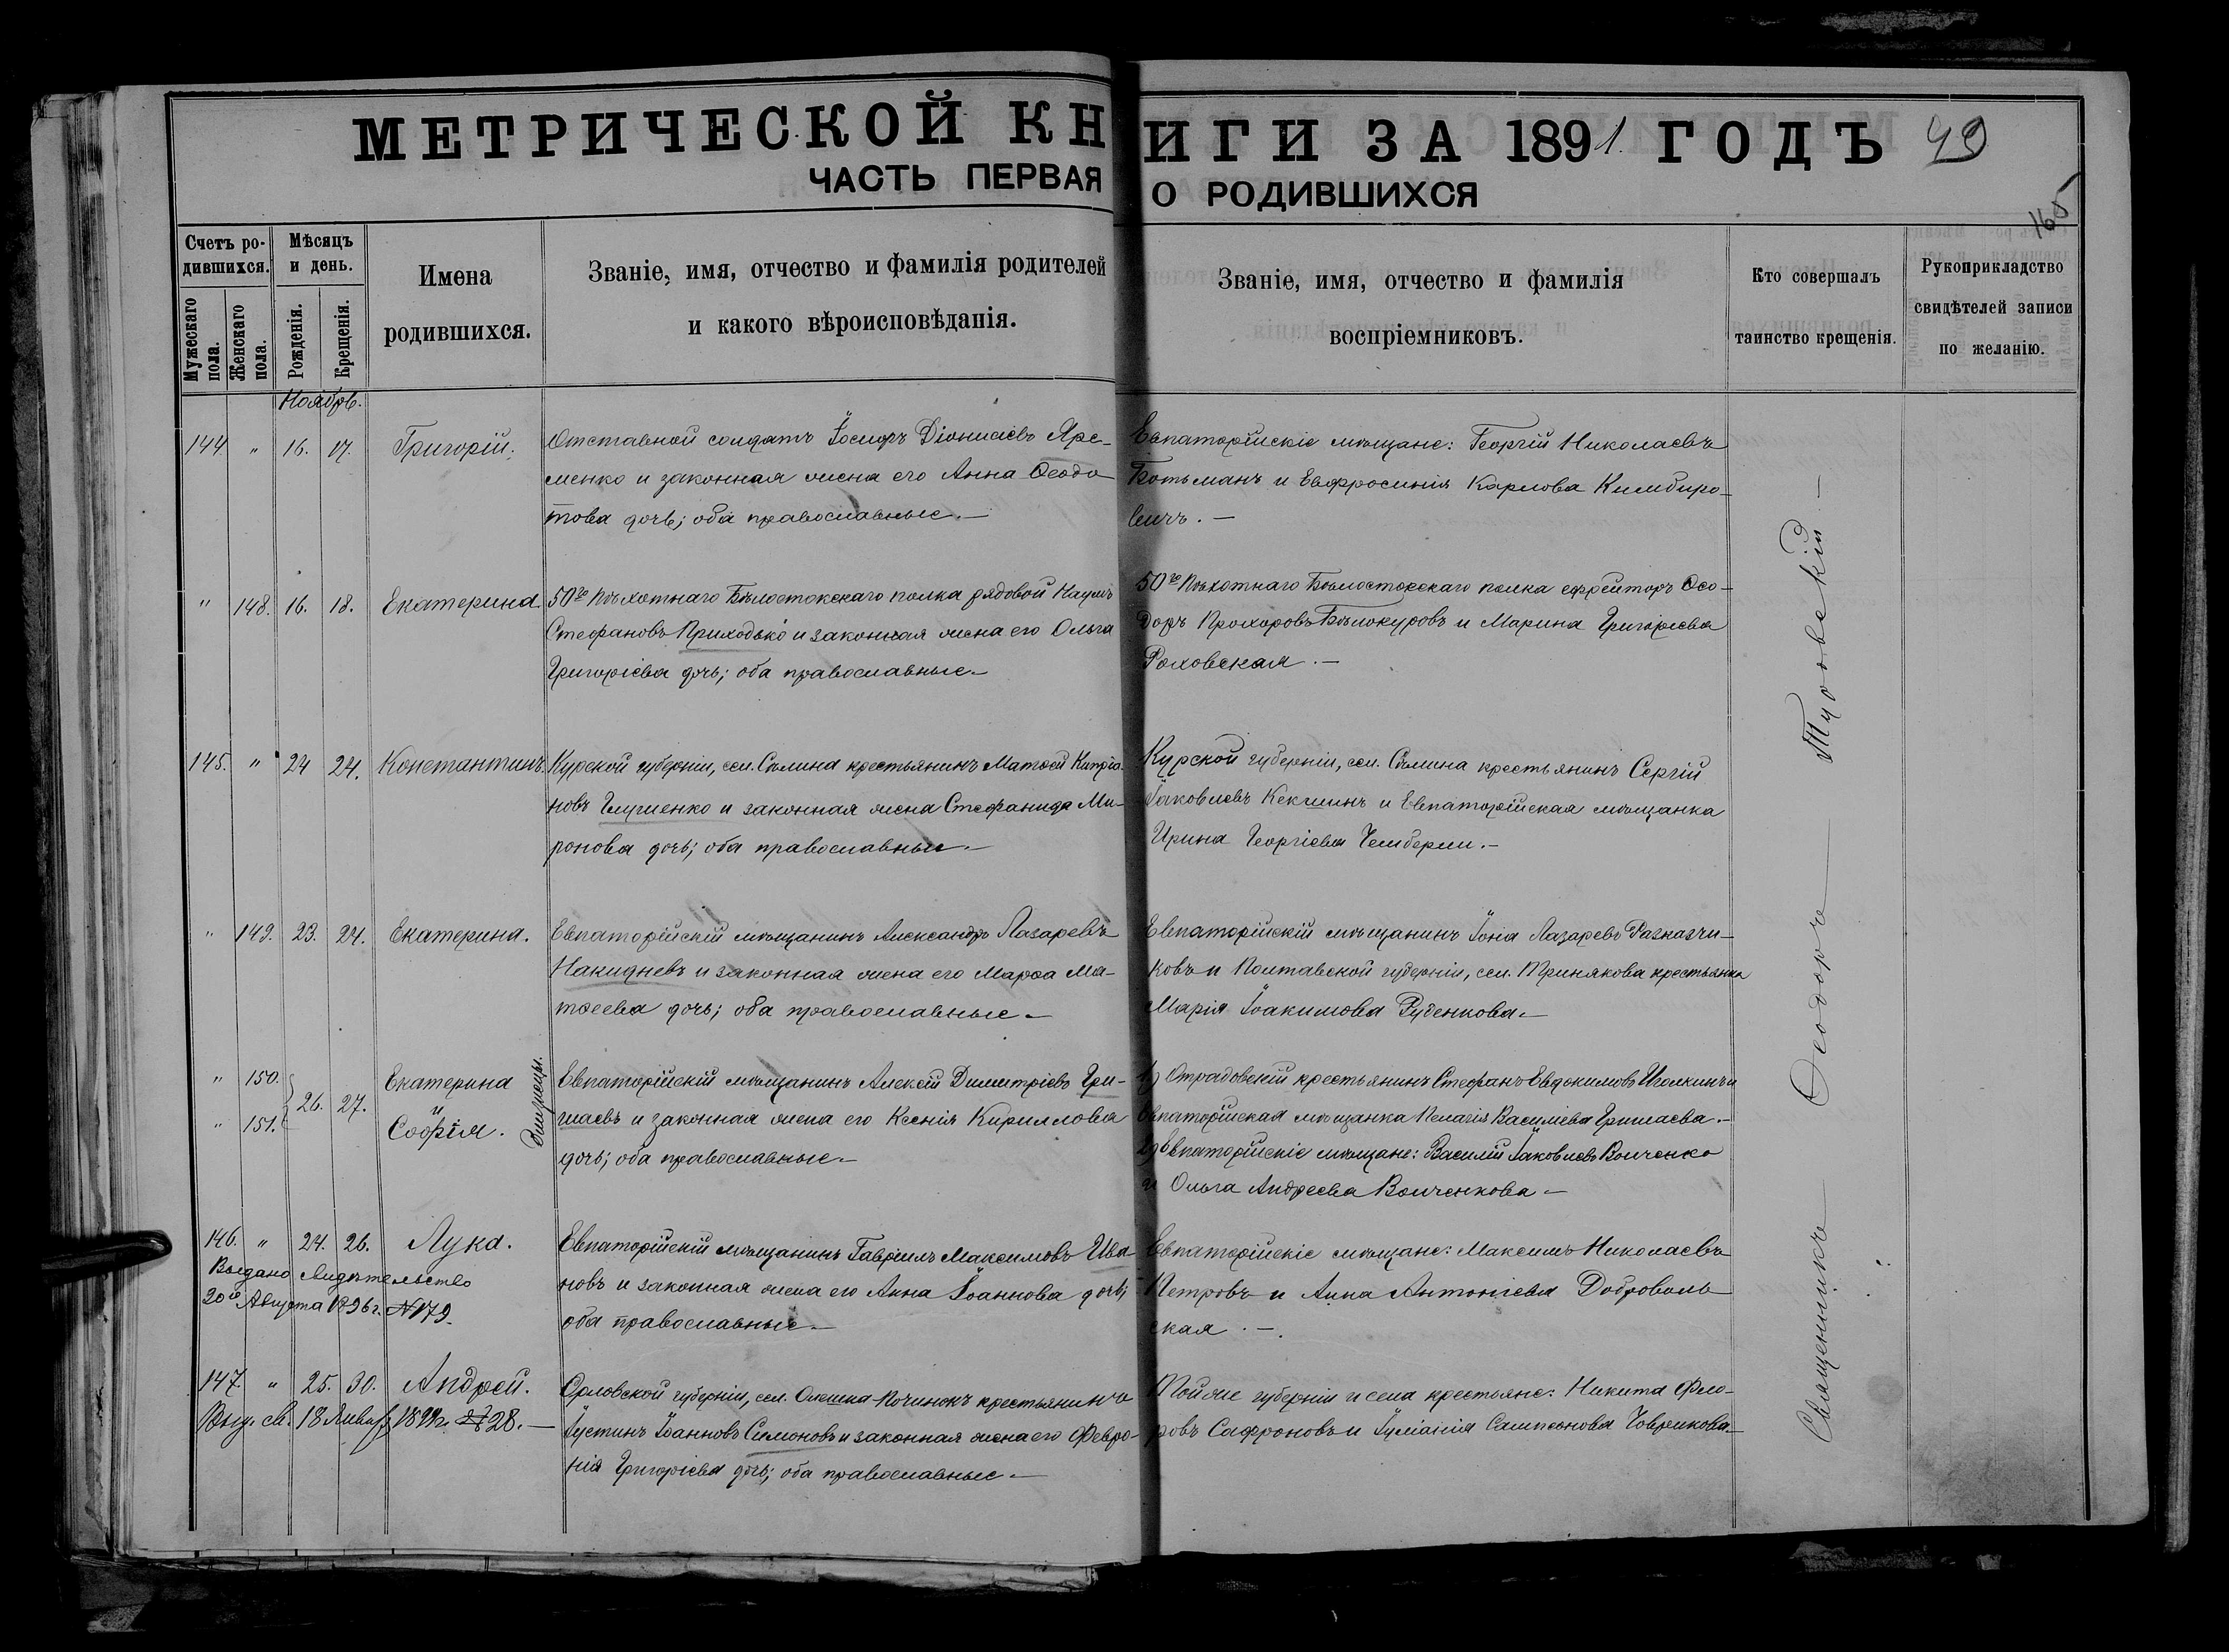 МЕТРИЧЕСКОЙ КНИГИ ЗА 1891. ГОДЪ 49
ЧАСТЬ ПЕРВАЯ О РОДИВШИХСЯ
165
Счетъ ро-
дившихся.
Мужескаго пола.
Женскаго пола.
Мѣсяцъ
и день.
Рожденія.
Крещенія.
Имена
родившихся.
Званіе, имя, отчество и фамилія родителей
и какого вѣроисповѣданія.
Званіе, имя, отчество и фамилія
воспріемниковъ.
Кто совершалъ
таинство крещенія.
Рукоприкладство
свидѣтелей записи
по желанію.
Ноябрь.
144. " 16. 17. Григорій.
Отставной солдатъ Іосифъ Діонисіевъ Яре-
менко и законная жена его Анна Ѳеодо-
това дочь; оба православные.—
Евпаторійскіе мѣщане: Георгій Николаевъ
Ботьманъ и Евфросинія Карлова Кимбиро-
вичъ.—
" 148. 16. 18. Екатерина
50го Пѣхотнаго Бѣлостокскаго полка рядовой Наумъ
Стефановъ Приходько и законная жена его Ольга
Григоріева дочь; оба православные.—
50го Пѣхотнаго Бѣлостокскаго полка ефрейторъ Ѳео-
доръ Прохоровъ Бѣлокуровъ и Марина Григоріева
Роховская.—
145. " 24 24. Константинъ.
Курской губерніи, сел. Сѣлина крестьянинъ Матѳей Кипріа-
новъ Глущенко и законная жена Стефанида Ми-
ронова дочь; оба православные.—
Курской губерніи, сел. Сѣлина крестьянинъ Сергій
Іаковлевъ Кекшинъ и Евпаторійская мѣщанка
Ирина Георгіева
" 149. 23. 24. Екатерина.
Евпаторійскій мѣщанинъ Александръ Лазаревъ
Накидневъ и законная жена его Марѳа Ма-
тѳеева дочь; оба православные.—
Евпаторійскій мѣщанинъ Іона Лазаревъ Разказчи-
ковъ и Полтавской губерніи, сел. Тринякова крестьянка
Марія Іоакимова Руденкова.—
" 150.
" 151. 26. 27.
Екатерина
и
Софія.
Близнецы.
Евпаторійскій мѣщанинъ Алексій Димитріевъ Гри-
шаевъ и законная жена его Ксенія Кириллова
дочь; оба православные.—
1) Отрадовскій крестьянинъ Стефанъ Евдокимовъ Иголкинъ и
Евпаторійская мѣщанка Пелагія Василіева Гришаева.—
2) Евпаторійскіе мѣщане: Василій Іаковлевъ Волченко
и Ольга Андреева Волченкова.—
146. " 24. 26. Лука.
Выдано свидѣтельство
20го Августа 1896 г. №179.
Евпаторійскій мѣщанинъ Гавріилъ Максимовъ Ива-
новъ и законная жена его Анна Іоаннова дочь;
оба православные.—
Евпаторійскіе мѣщане: Максимъ Николаевъ
Петровъ и Анна Антоніева Доброволь-
ская.—.
147. " 25. 30. Андрей.
Выд. св. 18 Января № 28.—
Орловской губерніи, сел. Починокъ крестьянинъ
Іустинъ Іоанновъ Симоновъ и законная жена его Февро-
нія Григоріева дочь; оба православные.—
Той же губерніи и села крестьяне: Никита Фло-
ровъ Сафроновъ и Іуліанія Сампсонова Говрикова.—
Священникъ — Ѳеодоръ — Туровскій —